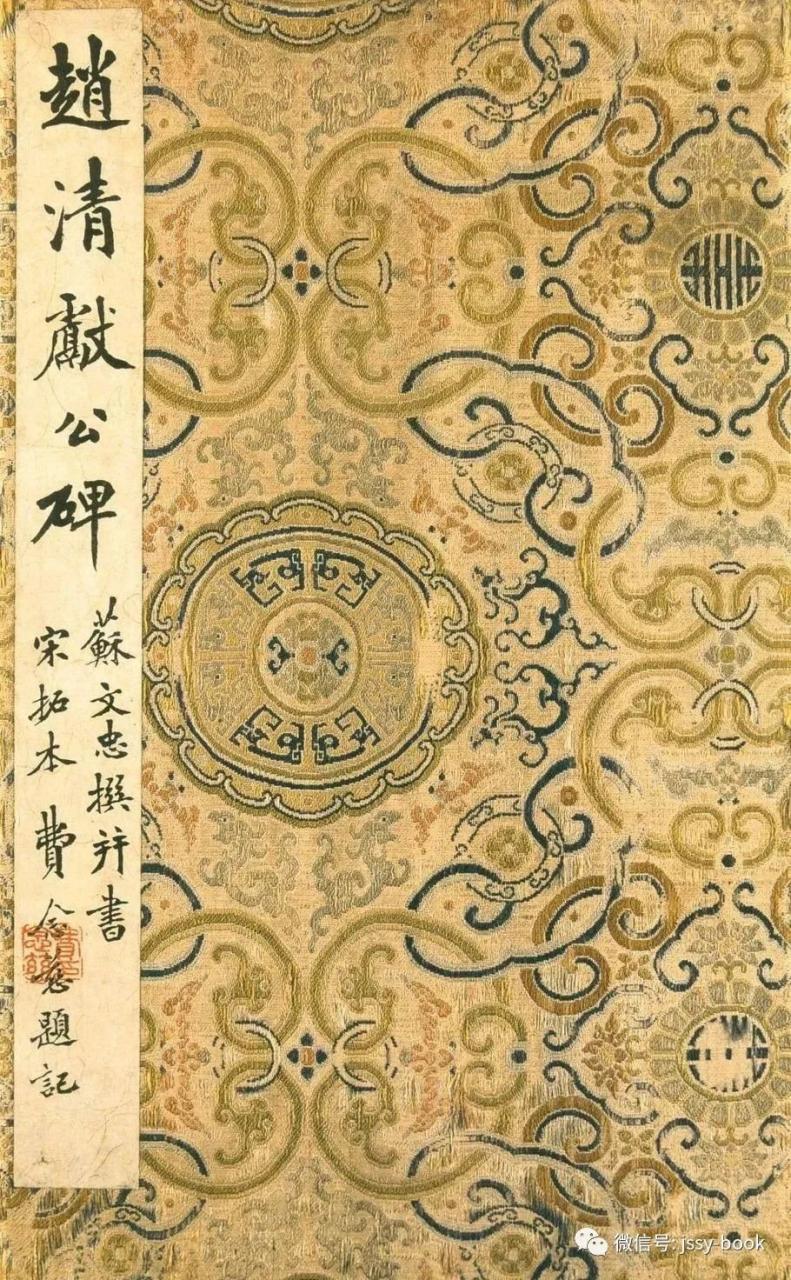 趙清獻公碑
蘇文忠撰并書
宋拓本 費念慈題記
微信号: jssy-book